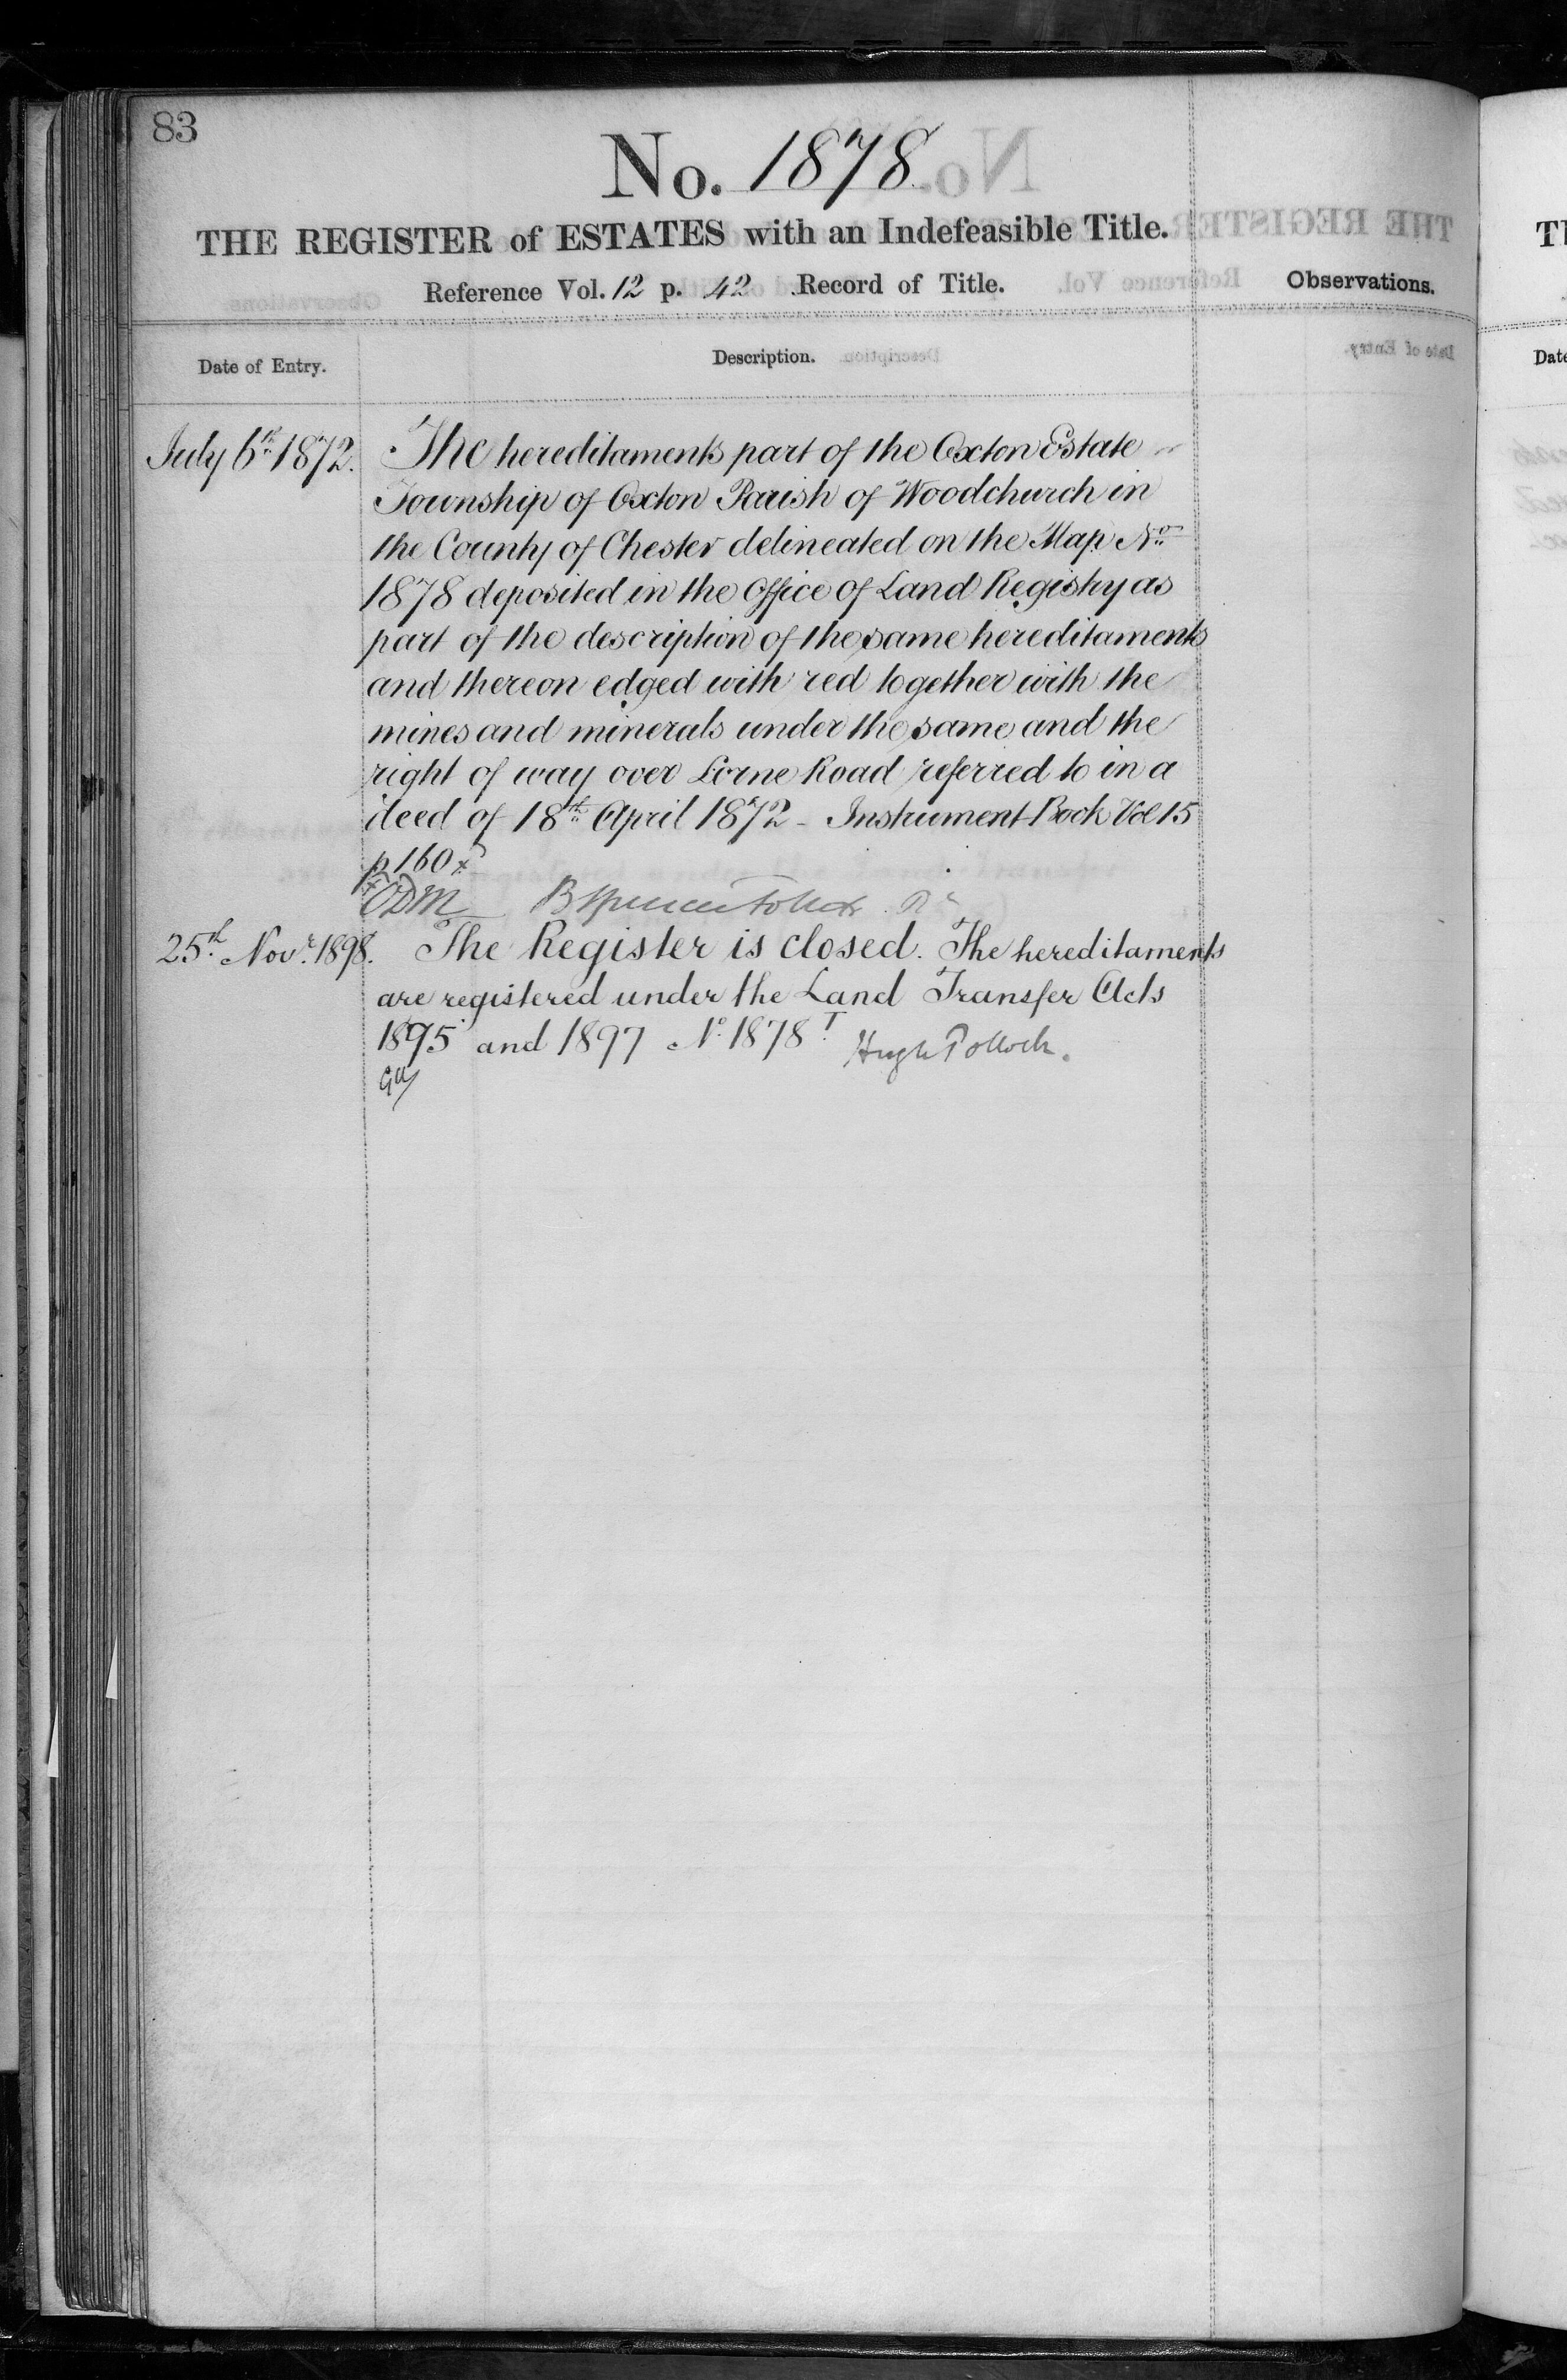 83
No. 1878
THE REGISTER of ESTATES with an Indefeasible Title.
Reference Vol. 12 p. 42 Record of Title.
Observations.
Date of Entry.
Description.
July 6th 1872.
The hereditaments part of the Oxton Estate
Township of Oxton Parish of Woodchurch in
the County of Chester delineated on the Map No
1878 deposited in the Office of Land Registry as
part of the description of the same hereditaments
and thereon edged with red together with the
mines and minerals under the same and the
right of way over Lorne Road referred to in a
deed of 18th April 1872 - Instrument Book Vol 15
p 160
25th Novr. 1898.
The Register is closed. The hereditaments
are registered under the Land Transfer Acts
1895 and 1897 No. 1878 T Hugh Pollock.